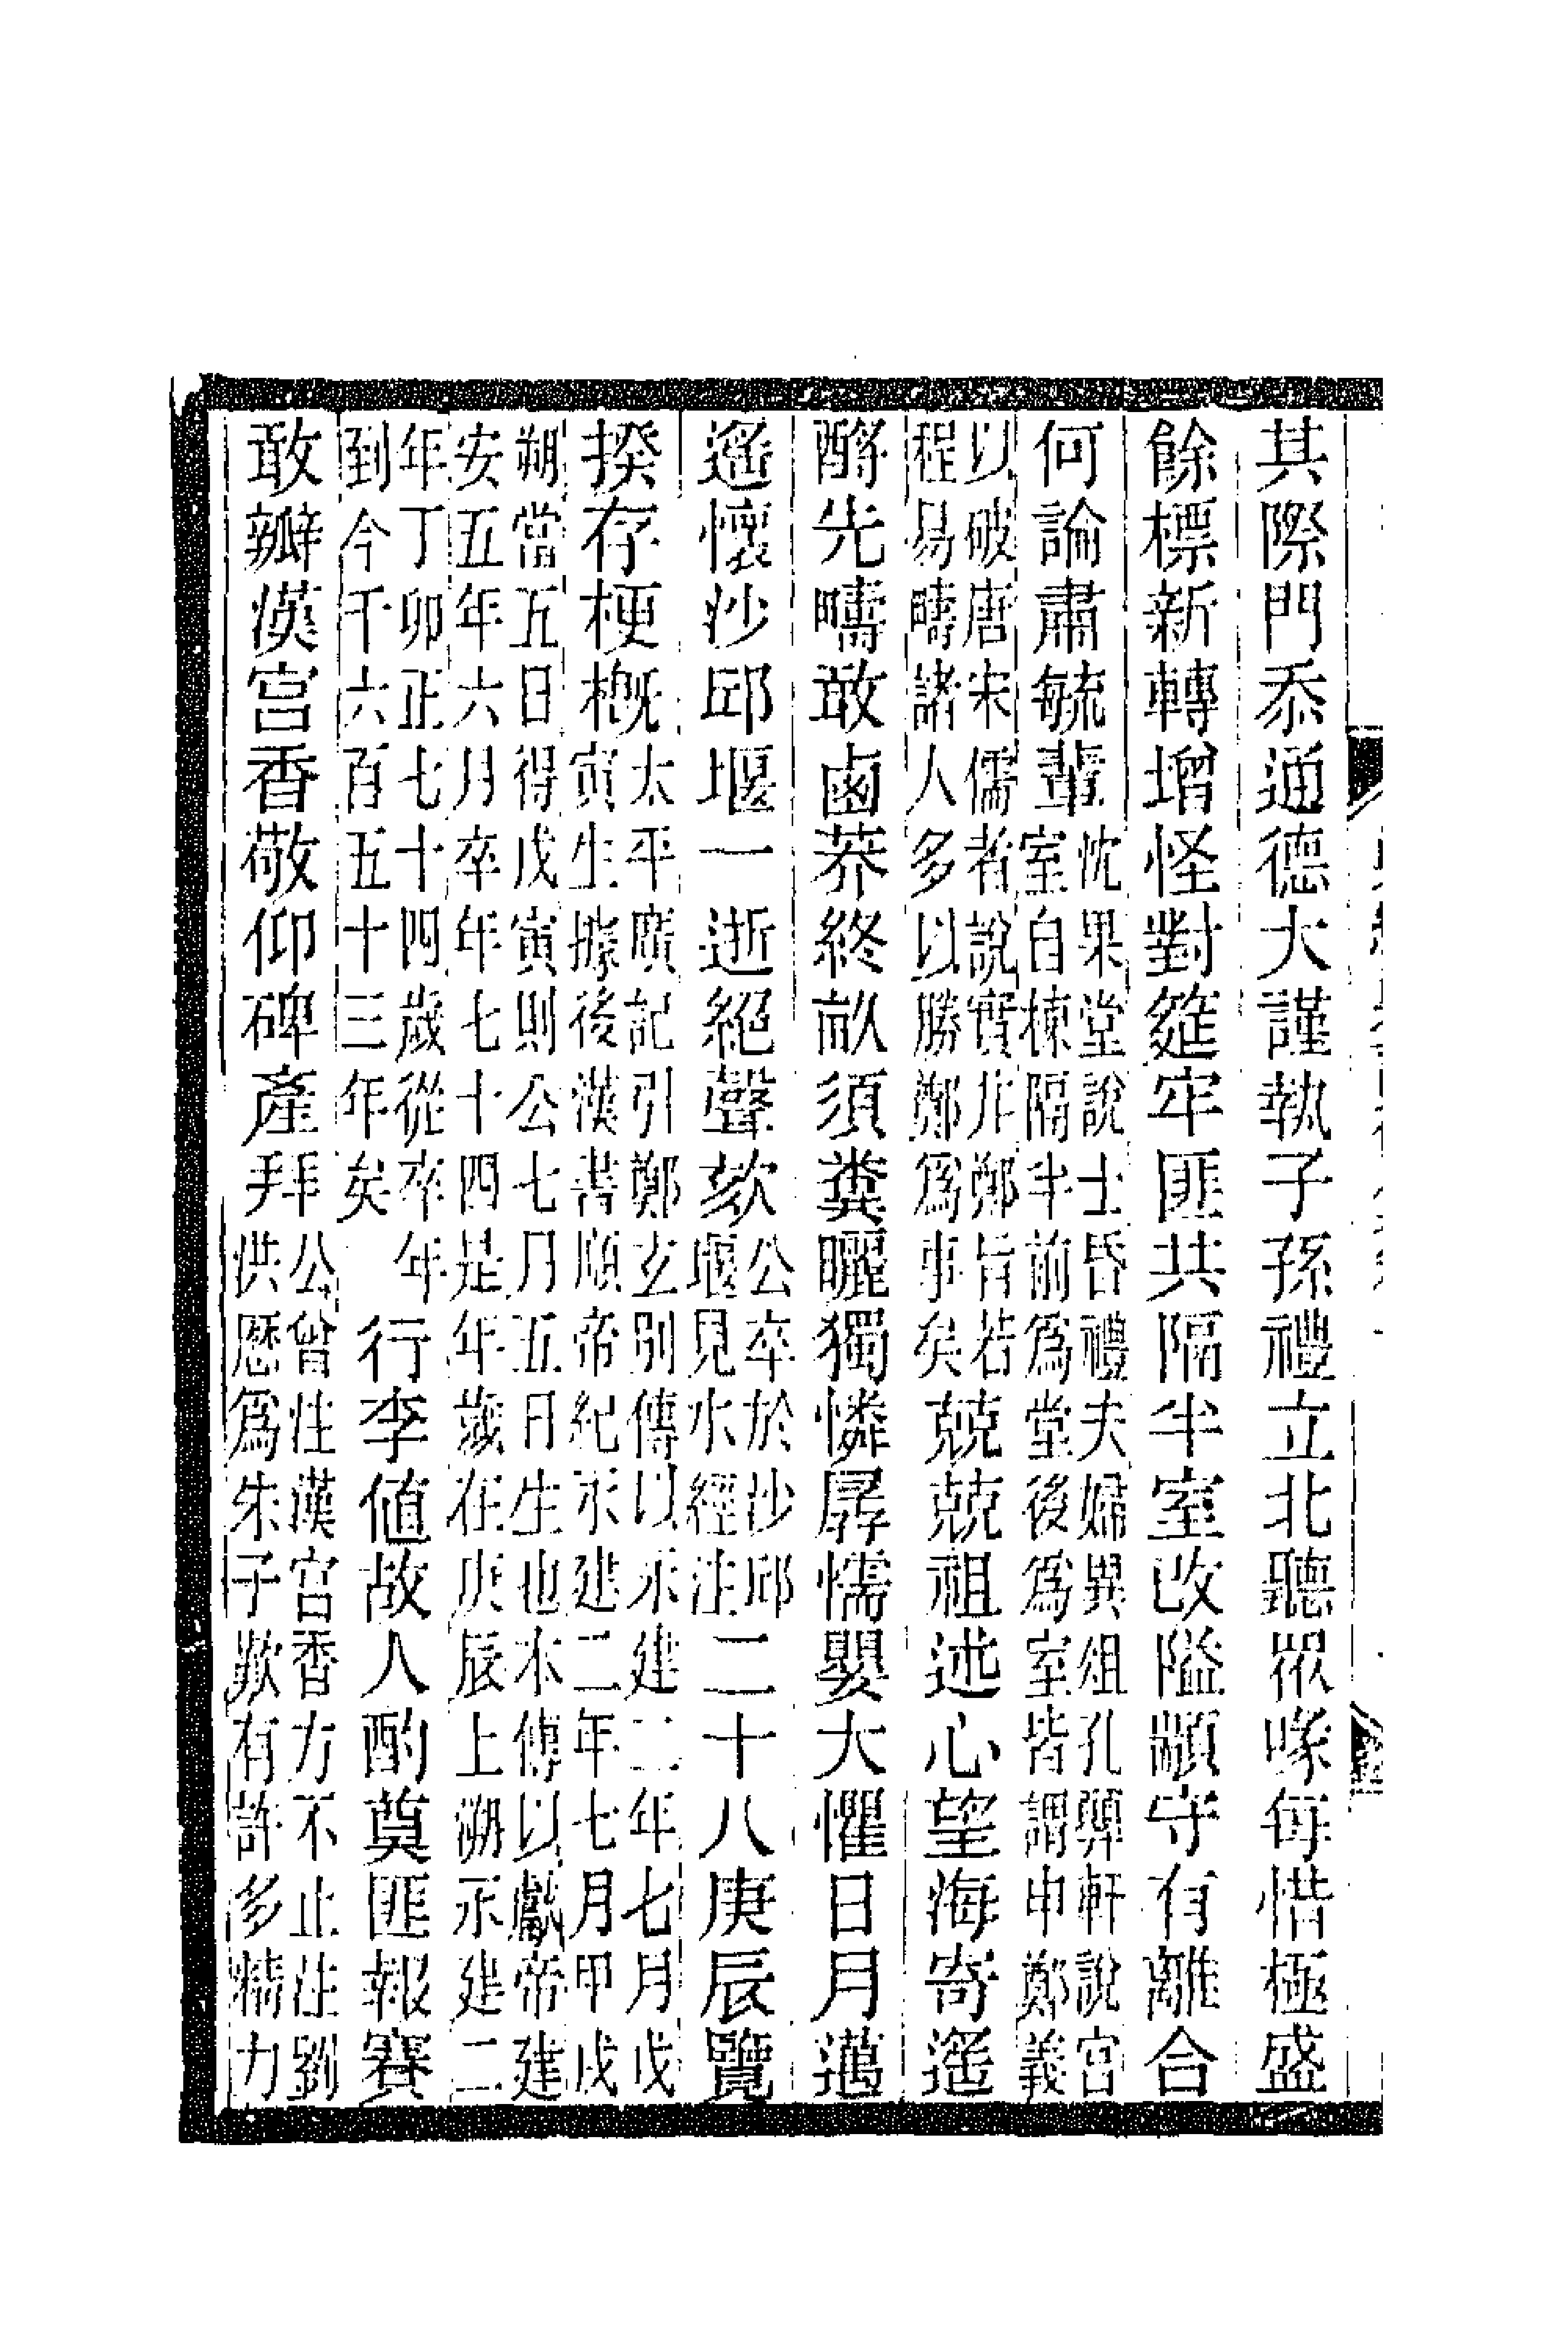 其際門忝通德大謹執子孫禮立北聽眾喙每惜極盛
餘標新轉增怪對筵牢匪共隔半室改隘顓守有離合
何論肅毓輩
沈果堂說士昏禮夫婦異俎孔顨軒說宫
室自棟隔半前爲堂後爲室皆謂申鄭義
以破唐宋儒者說實非鄭旨若
程易疇諸人多以勝鄭爲事矣
兢兢祖述心望海寄遥
酹先疇敢鹵莽終畝須糞曬獨憐孱懦嬰大懼日月邁
遥懷沙邱堰一逝絕聲欬
公卒於沙邱
堰見水經注
二十八庚辰覽
揆存梗概
太平廣記引鄭玄別傳以永建二年七月戊
寅生據後漢書順帝紀永建二年七月甲戌
朔當五日得戊寅則公七月五日生也本傳以獻帝建
安五年六月卒年七十四是年歲在庚辰上溯永建二
年丁卯正七十四歲從卒年
到今千六百五十三年矣
行李値故人酌奠匪報賽
敢瓣漢宫香敬仰碑產拜
公曾注漢宫香方不止注劉
洪厯爲朱子歎有許多精力